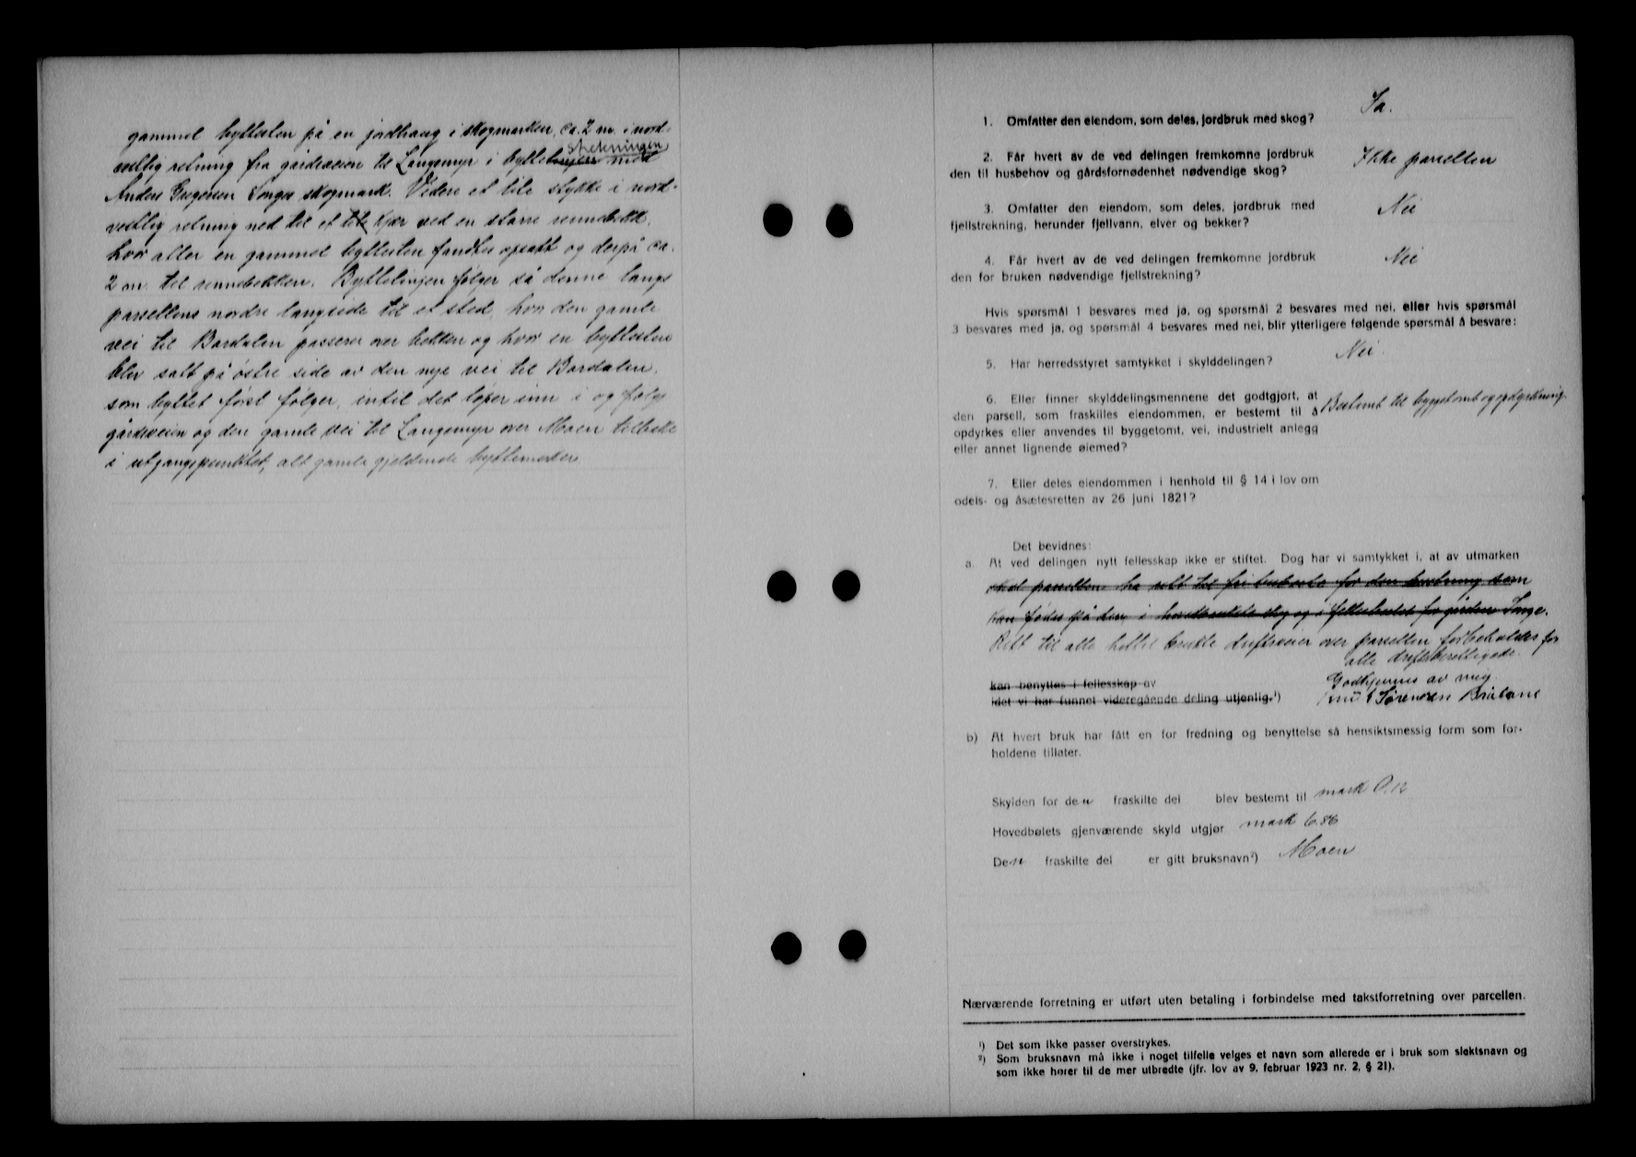 gammel byttesten på en jordhaug i skogmarken, ca. 2 m. i nord-
vestlig retning fra gårdsveien til Langemyr i byttelinjen med
strekningen
Anders Gregersen Songes skogmark. Videre et lite stykke i nord-
vestlig retning ned til et lite kjær ved en større rennebekk,
hvor atter en gammel byttesten fandtes opsatt og derpå ca.
2 m. til rennebekken. Byttelinjen følger så denne langs
parsellens nordre langside til et sted, hvor den gamle
vei til Bardalen passerer over bekken og hvor en byttesten
blev satt på östre side av den nye vei til Bardalen,
som byttet først følger, intil det løper inn i og følge
gårdsveien og den gamle vei til Langemyr over Moen tilbake
i utgangspunktet, alt gamle gjeldende byttemerker.
1. Omfatter den eiendom, som deles, jordbruk med skog?
Ja.
2. Får hvert av de ved delingen fremkomne jordbruk
den til husbehov og gårdsfornødenhet nødvendige skog?
Ikke parsellen
3. Omfatter den eiendom, som deles, jordbruk med
fjellstrekning, herunder fjellvann, elver og bekker?
Nei
4. Får hvert av de ved delingen fremkomne jordbruk
den for bruken nødvendige fjellstrekning?
Nei
Hvis spørsmål 1 besvares med ja, og spørsmål 2 besvares med nei, eller hvis spørsmål
3 besvares med ja, og spørsmål 4 besvares med nei, blir ytterligere følgende spørsmål å besvare:
5. Har herredsstyret samtykket i skylddelingen?
Nei.
6. Eller finner skylddelingsmennene det godtgjort, at
den parsell, som fraskilles eiendommen, er bestemt til å
opdyrkes eller anvendes til byggetomt, vei, industrielt anlegg
eller annet lignende øiemed?
Bestemt til byggetomt og opdyrkning.
7. Eller deles eiendommen i henhold til § 14 i lov om
odels- og åsætesretten av 26 juni 1821?
Det bevidnes:
a. At ved delingen nytt fellesskap ikke er stiftet. Dog har vi samtykket i, at av utmarken
skal parsellen ha rett til fri for den som
kan födes på den i og i for gården Songe.
Rett til alle hittil brukte driftsveier over parsellen forbeholdes for
alle driftsberettigede.
kan benyttes i fellesskap av
idet vi har funnet videregående deling utjenlig.¹)
Godkjennes av mig
Sørensen
b) At hvert bruk har fått en for fredning og benyttelse så hensiktsmessig form som for-
holdene tillater.
Skylden for den fraskilte del blev bestemt til mark 0.12
Hovedbølets gjenværende skyld utgjør mark 6.86
Den fraskilte del er gitt bruksnavn²) Moen
Nærværende forretning er utført uten betaling i forbindelse med takstforretning over parcellen.
¹) Det som ikke passer overstrykes.
²) Som bruksnavn må ikke i noget tilfelle velges et navn som allerede er i bruk som slektsnavn og
som ikke hører til de mer utbredte (jfr. lov av 9. februar 1923 nr. 2, § 21).